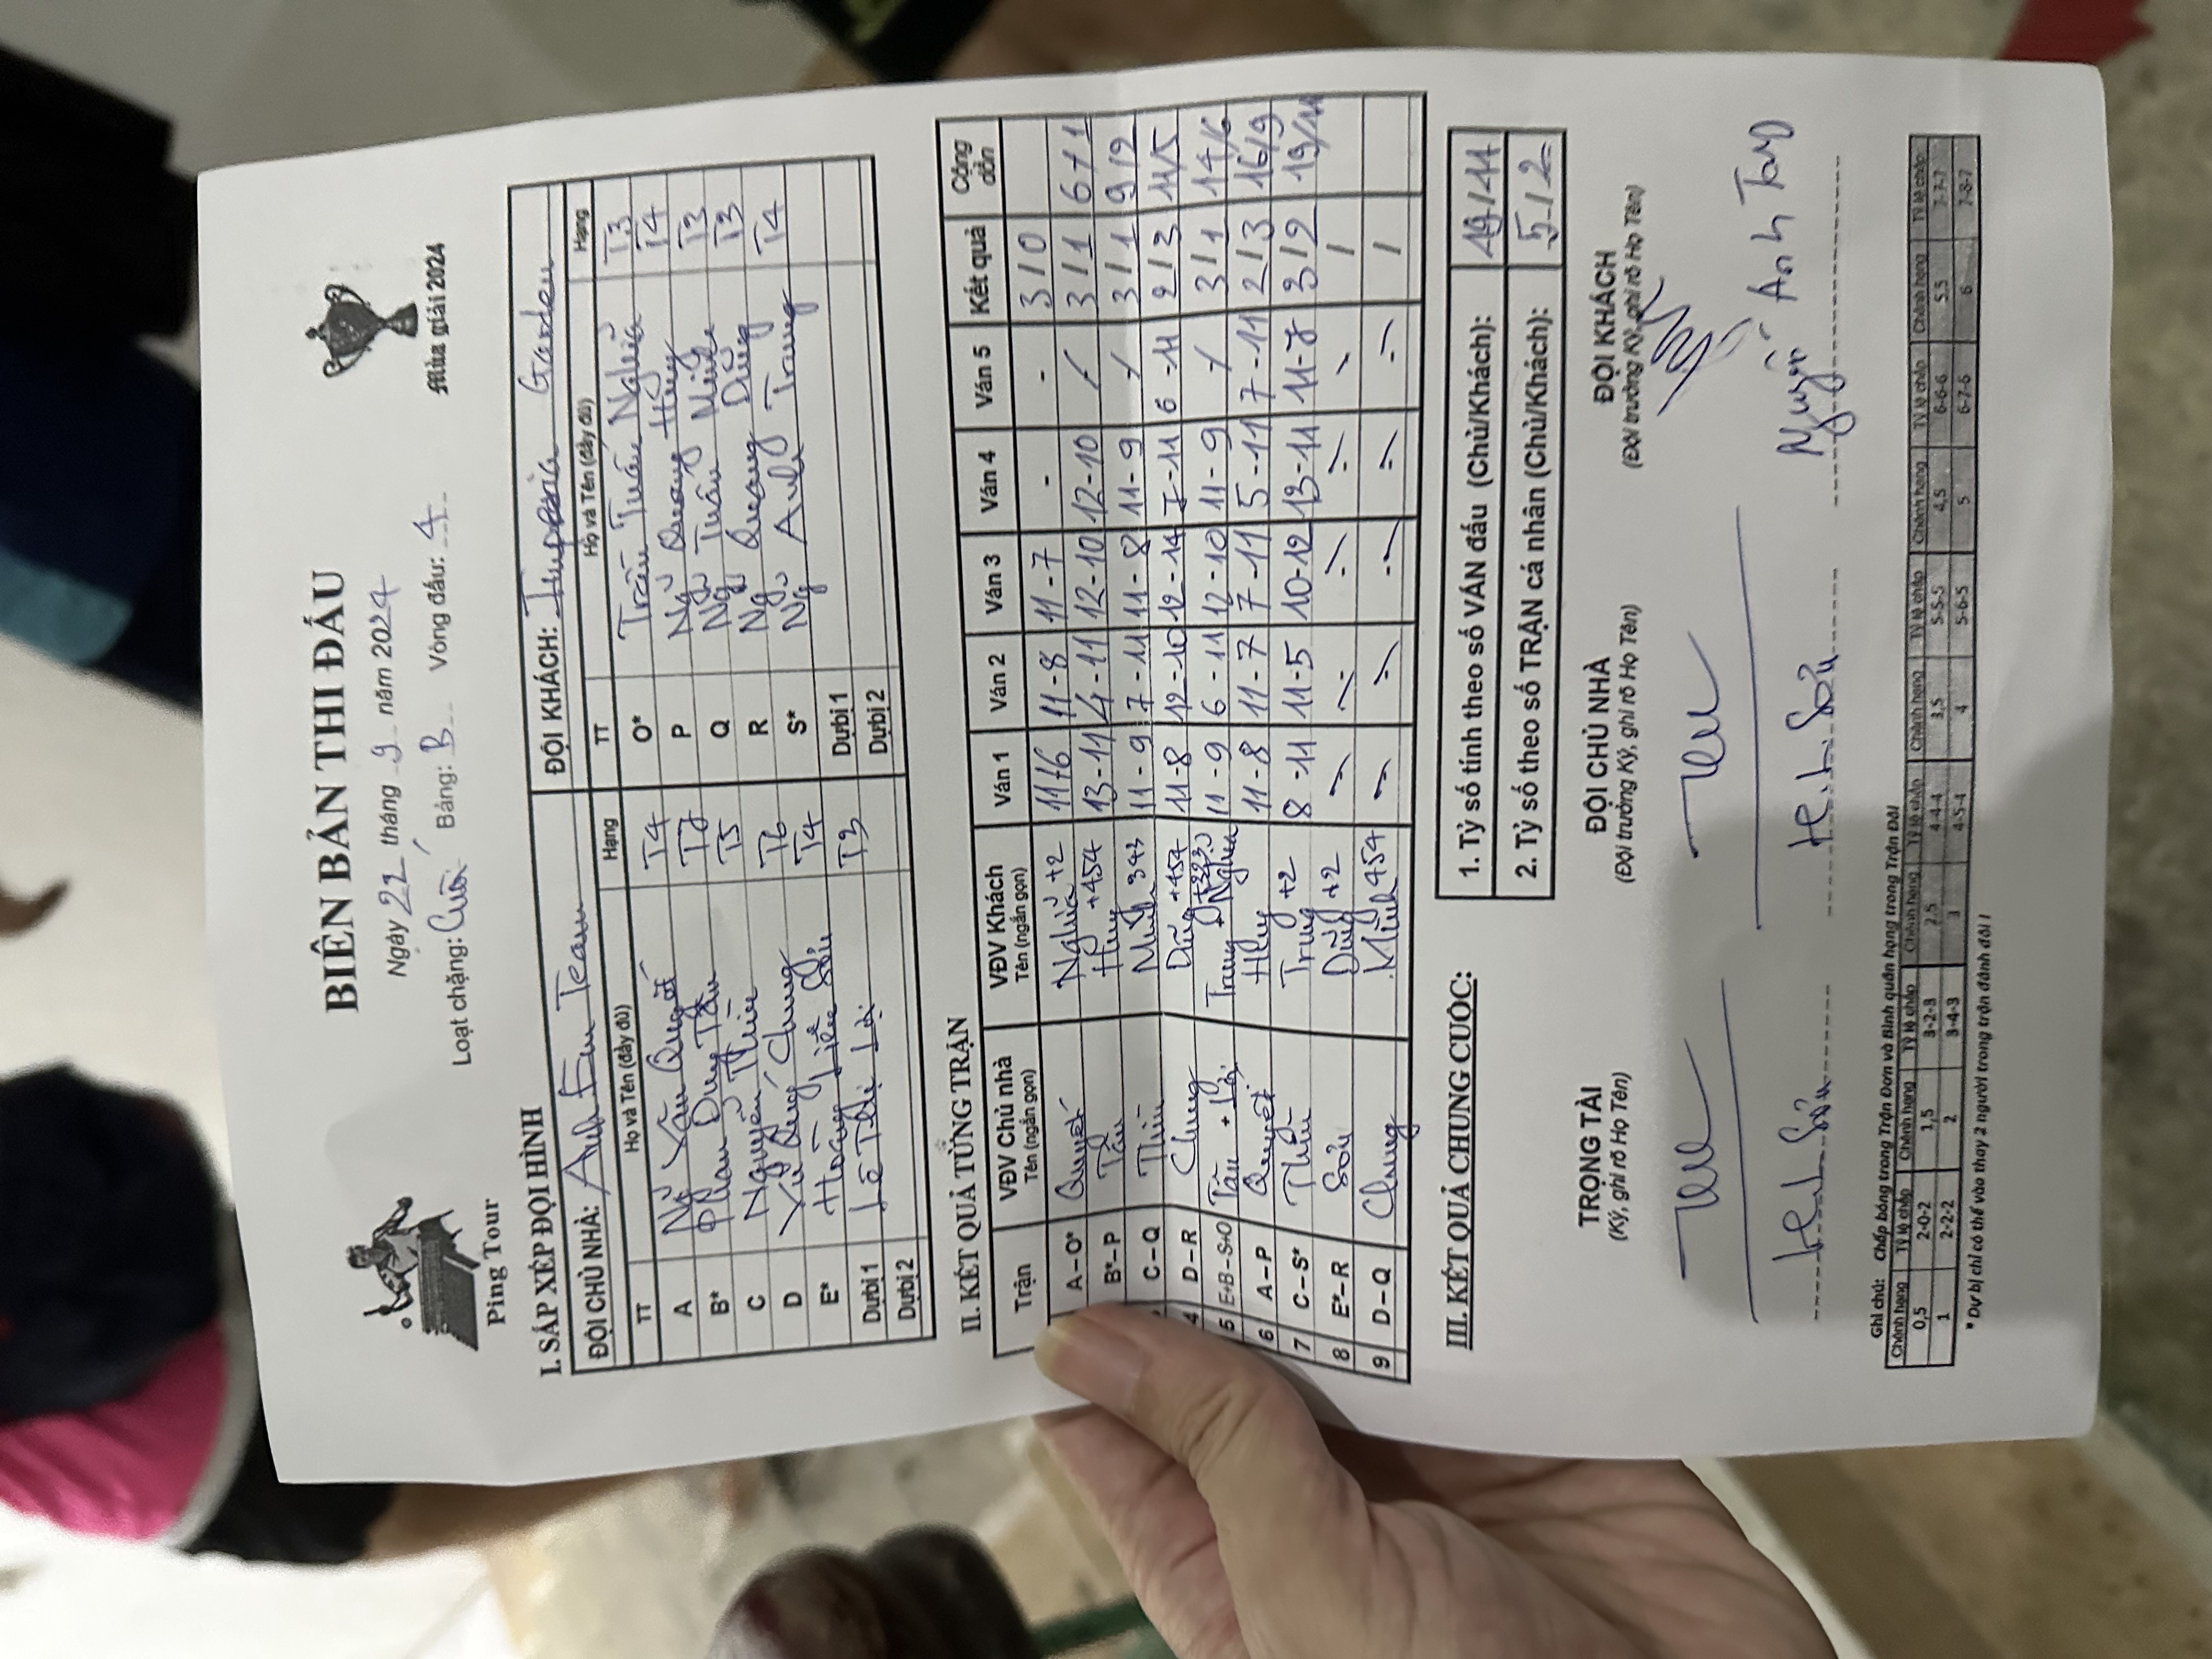 Ping Tour
BIÊN BẢN THI ĐẤU
Ngày 22 tháng 9 năm 2024
Loạt chặng: Cuối Bảng: B Vòng đấu: 4
Mùa giải 2024
I. SẮP XẾP ĐỘI HÌNH
ĐỘI CHỦ NHÀ: Anh Em Team ĐỘI KHÁCH: Imperia Garden
TT Họ và Tên (đầy đủ) Hạng TT Họ và Tên (đầy đủ) Hạng
A Ng Văn Quyết T4 O* Trần Tuấn Nghĩa T3
B* Phan Duy Tân T7 P Ng Quang Huy T4
C Nguyễn Thìn T5 Q Ng Tuấn Minh T3
D Vũ Quý Chung T6 R Ng Quang Dũng T3
E* Hoàng Liên Sơn T4 S* Ng Anh Trung T4
Dự bị 1 Lê Thị Lợi T3 Dự bị 1
Dự bị 2 Dự bị 2
II. KẾT QUẢ TỪNG TRẬN
Trận VĐV Chủ nhà Tên (ngắn gọn) VĐV Khách Tên (ngắn gọn) Ván 1 Ván 2 Ván 3 Ván 4 Ván 5 Kết quả Cộng dồn
A – O* Quyết Nghĩa +2 11/6 11-8 11-7 - - 3/0
B* – P Tân Huy +454 13-11 4-11 12-10 12-10 / 3/1 6/1
C – Q Thìn Minh 343 11-9 7-11 11-8 11-9 / 3/1 9/2
4 D – R Chung Dũng +454 11-8 12-10 12-14 7-11 6-11 2/3 11/5
5 E+B – S+O Tân + Lợi Trung + Nghĩa 11-9 6-11 12-10 11-9 / 3/1 14/6
6 A – P Quyết Huy 11-8 11-7 7-11 5-11 7-11 2/3 16/9
7 C – S* Thìn Trung +2 8-11 11-5 10-12 13-11 11-7 3/2 19/11
8 E* – R Sơn Dũng +2 /
9 D – Q Chung Minh 454 /
III. KẾT QUẢ CHUNG CUỘC:
1. Tỷ số tính theo số VÁN đấu (Chủ/Khách): 19/11
2. Tỷ số theo số TRẬN cá nhân (Chủ/Khách): 5/2
TRỌNG TÀI ĐỘI CHỦ NHÀ ĐỘI KHÁCH
(Ký, ghi rõ Họ Tên) (Đội trưởng Ký, ghi rõ Họ Tên) (Đội trưởng Ký, ghi rõ Họ Tên)
H.L.Sơn H.L.Sơn Nguyễn Anh
Ghi chú: Chấp bóng trong Trận Đơn và Bình quân hạng trong Trận Đôi
Chênh hạng Tỷ lệ chấp Chênh hạng Tỷ lệ chấp Chênh hạng Tỷ lệ chấp Chênh hạng Tỷ lệ chấp Chênh hạng Tỷ lệ chấp Chênh hạng Tỷ lệ chấp
0,5 2-0-2 1,5 3-2-3 2,5 4-4-4 3,5 5-5-5 4,5 6-6-6 5,5 7-7-7
1 2-2-2 2 3-4-3 3 4-5-4 4 5-6-5 5 6-7-6 6 7-8-7
* Dự bị chỉ có thể vào thay 2 người trong trận đánh đôi !